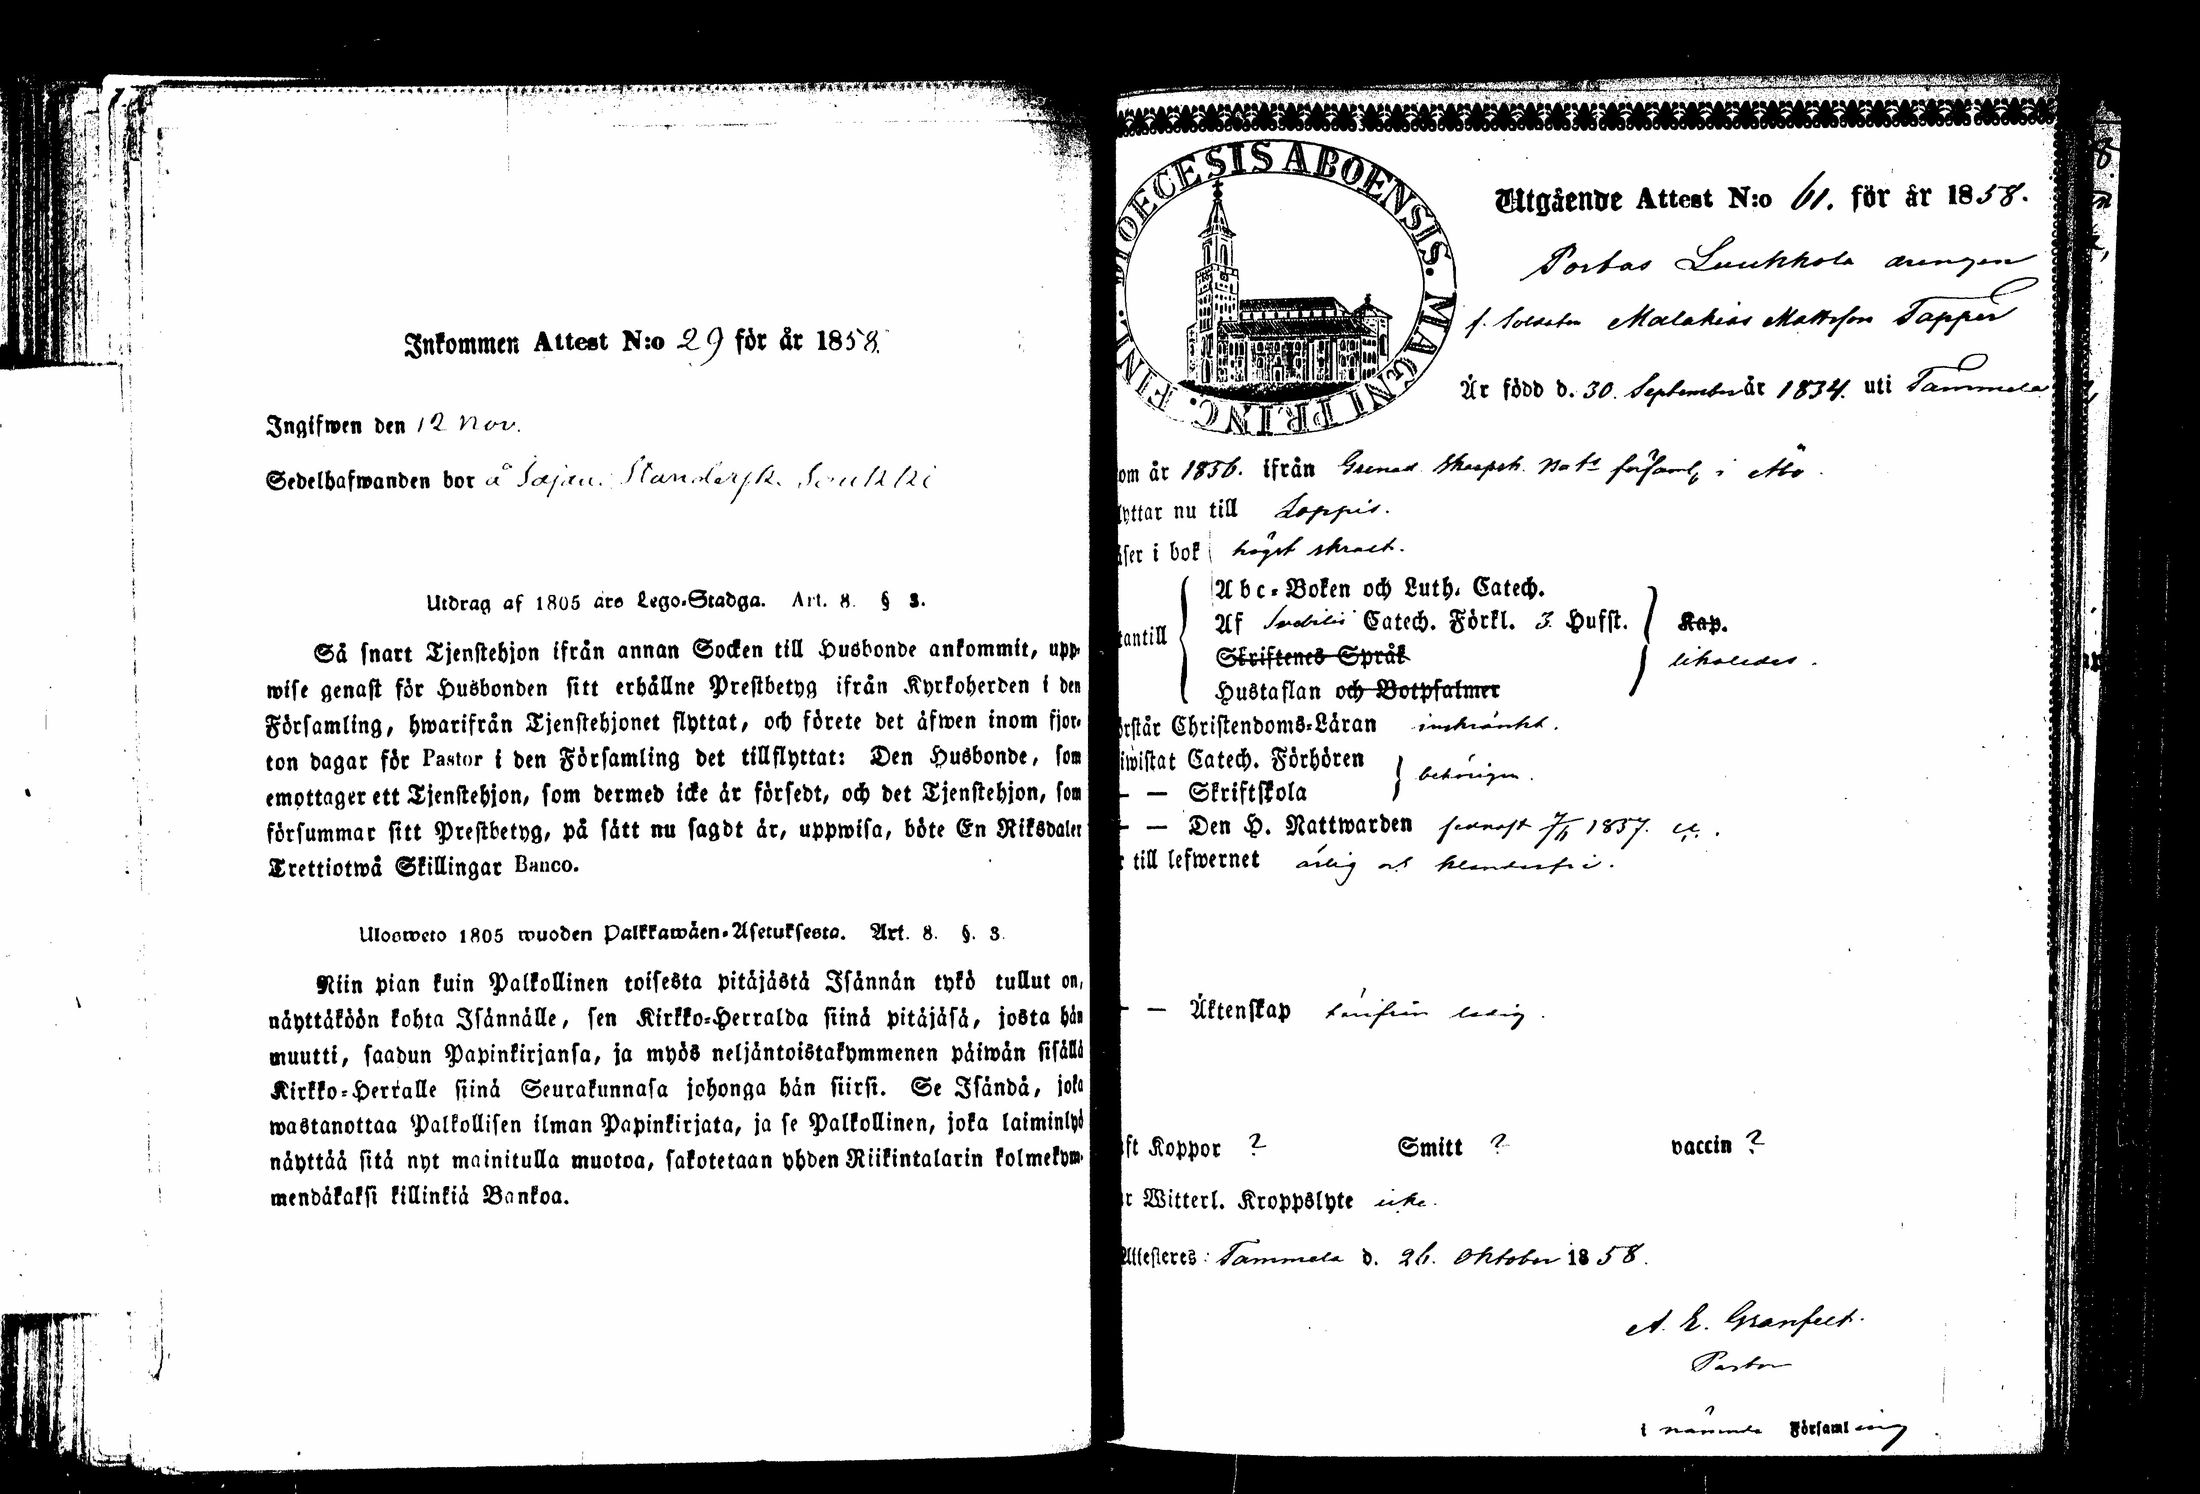 Inkommen Attest N:o 29 för år 1858.
Ingifwen den 12 Nov.
Sedelhafwanden bor å Sajan.
Utdrag af 1805 års Lego-Stadga. Art. 8. § 3.
Så snart Tjenstehjon ifrån annan Socken till Husbonde ankommit, upp-
wise genast för Husbonden sitt erhållne Prestbetyg ifrån Kyrkoherden i den
Församling, hwarifrån Tjenstehjonet flyttat, och förete det äfwen inom fjor-
ton dagar för Pastor i den Församling det tillflyttat: Den Husbonde, som
emottager ett Tjenstehjon, som dermed icke är försedt, och det Tjenstehjon, som
försummar sitt Prestbetyg, på sätt nu sagdt är, uppwisa, böte En Riksdaler
Trettiotwå Skillingar Banco.
Ulosweto 1805 wuoden Palkkawäen-Asetuksesta. Art. 8. §. 3.
Niin pian kuin Palkollinen toisesta pitäjästä Isännän tykö tullut on,
näyttäköön kohta Isännälle, sen Kirkko-Herralda siinä pitäjäsä, josta hän
muutti, saadun Papinkirjansa, ja myös neljäntoistakymmenen päiwän sisällä
Kirkko-Herralle siinä Seurakunnasa johonga hän siirsi. Se Isändä, joka
wastanottaa Palkollisen ilman Papinkirjata, ja se Palkollinen, joka laiminlyö
näyttää sitä nyt mainitulla muotoa, sakotetaan yhden Riikintalarin kolmekym-
mendäkaksi killinkiä Bankoa.
DIOECESIS ABOENSIS. MAGNI PRINC. FINL.
Utgående Attest N:o 61. för år 1858.
Porbas Luukkola drengen
f. Soldaten Malakias Mattsson Tapper
Är född d. 30. September år 1834. uti Tammela
om år 1856. ifrån Grenad. Skarpsk. Bat:s förSaml. i Åbo.
lyttar nu till Loppis.
äser i bok högst skralt.
tantill
Abc-Boken och Luth. Catech.
Af Svebilii Catech. Förkl. 3. Hufst. Kap.
Skriftenes Språk likaledes.
Hustaflan och Botpsalmer
örstår Christendoms-Läran inskränkt.
iwistat Catech. Förhören behörigen.
— — Skriftskola
— — Den H. Nattwarden senast 7/11 1857.
r till lefwernet ärlig och klanderfri.
— — Äktenskap härifrån ledig.
aft Koppor ? Smitt ? vaccin ?
ar Witterl. Kroppslyte icke.
Attesteres: Tammela d. 26. Oktober 1858.
A. E. Granfelt.
Pastor
i nämnde Församling